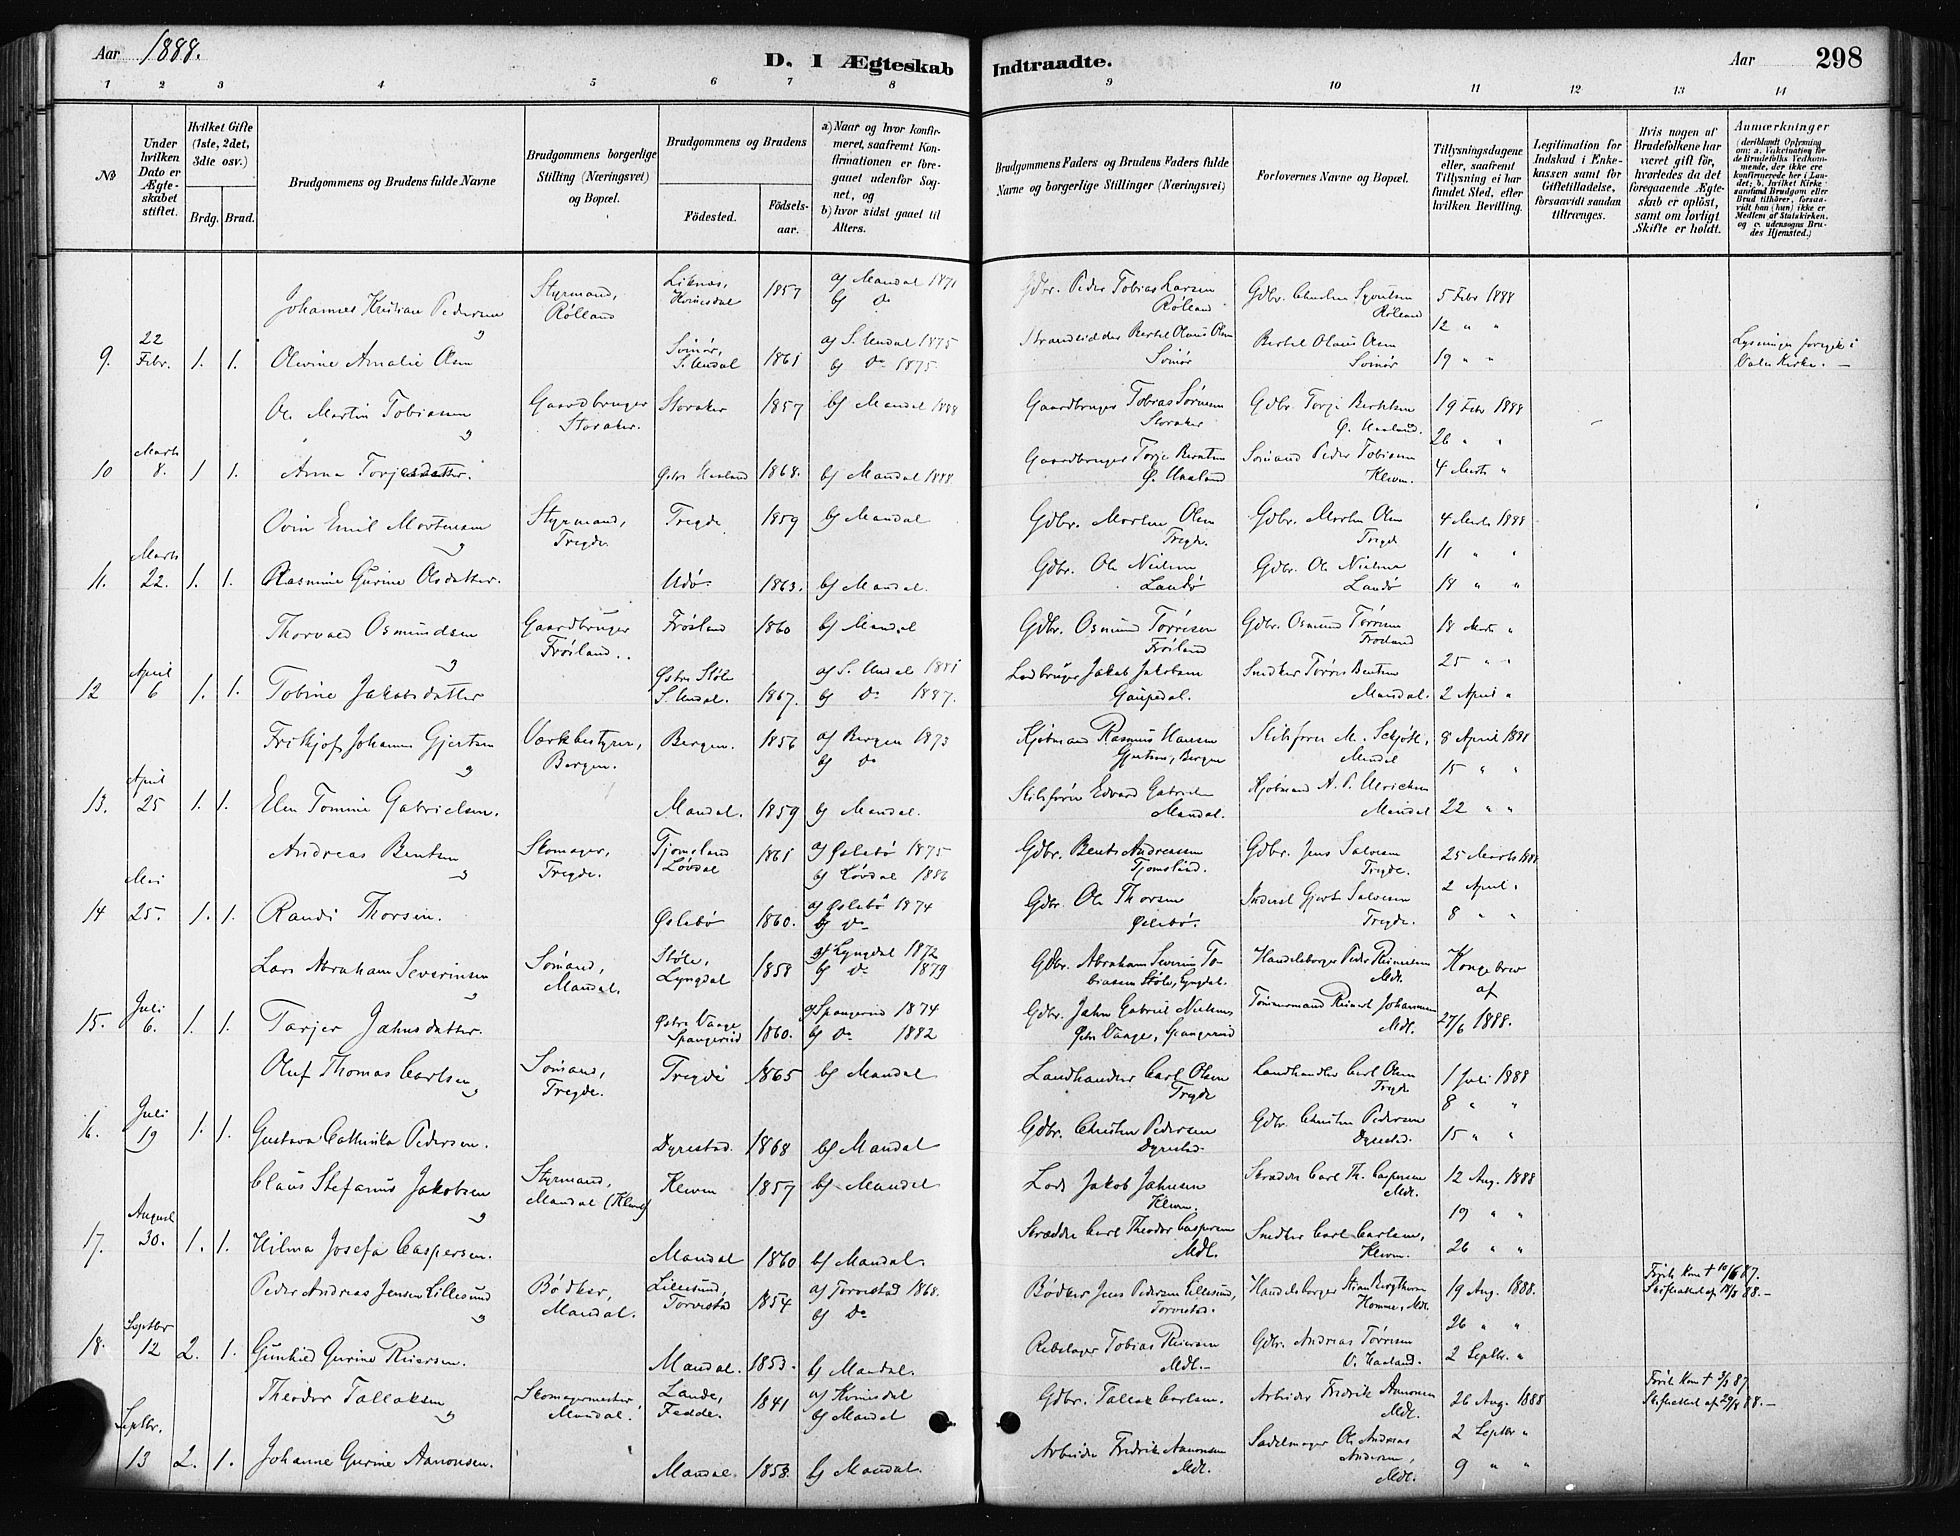 Aar 1888.
D. I Ægteskab Indtraadte.
Aar
298
1 2 3 4 5 6 7 8 9 10 11 12 13 14
No
Under hvilken Dato er Ægteskabet stiftet.
Hvilket Gifte (1ste, 2det, 3die osv.)
Brdg. Brud.
Brudgommens og Brudens fulde Navne
Brudgommens borgerlige Stilling (Næringsvei) og Bopæl.
Brudgommens og Brudens
Fødested.
Fødsels-aar.
a) Naar og hvor konfirmeret, saafremt Konfirmationen er foregaaet udenfor Sognet, og
b) hvor sidst gaaet til Alters.
Brudgommens Faders og Brudens Faders fulde Navne og borgerlige Stillinger (Næringsvei)
Forlovernes Navne og Bopæl.
Tillysningsdagene eller, saafremt Tillysning ei har fundet Sted, efter hvilken Bevilling.
Legitimation for Indskud i Enkekassen samt for Giftetilladelse, forsaavidt saadan tiltrænges.
Hvis nogen af Brudefolkene har været gift før, hvorledes da det foregaaende Ægteskab er opløst, samt om lovligt Skifte er holdt.
Anmærkninger (deriblandt Oplysning om: a. Vakcination for de Brudefolks Vedkommende, der ikke ere konfirmerede her i Landet; b. hvilket Kirkesamfund Brudgom eller Brud tilhører, forsaavidt han (hun) ikke er Medlem af Statskirken. og c. udensogns Brudes Hjemsted.)
Johannes Kristian Pedersen Styrmand, Røiland Liknes, Kvinesdal 1857 a) Mandal 1871 b) Do Gdbr. Peder Tobias Larsen Røiland 5 Febr 1888
12 " "
9. 22 Febr. 1. 1. Olevine Amalie Olsen Svinør, S. Undal 1861 a) S. Undal 1875 b) Do 1875. Bertel Olaus Olsen Svinør Bertel Olaus Olsen Svinør 19 " "
Ole Martin Tobiassen Gaardbruger Storaker. Storaker 1857 b) Mandal 1888 Gaardbruger Tobias Sørensen Storaker Gdbr. Torje Berntsen Ø. Haaland. 19 Febr 1888
26 " "
10 Marts 8. 1 1. Anna Torjesdatter. Østre Haaland 1868. b) Mandal 1888 Gaardbruger Torje Berntsen Ø. Haaland Sømand Peder Tobiassen Kleven. 4 Marts "
Ovin Emil Mortensen Styrmand, Tregde. Tregde 1859 b) Mandal Gdbr. Morten Olsen Tregde. Gdbr. Morten Olsen Tregde 4 Marts 1888
11 " "
11. Marts 22. 1. 1. Rasmine Gurine Olsdatter. Udø. 1863. b) Mandal. Gdbr. Ole Nielsen Landø Gdbr. Ole Nielsen Landø 18 " "
Thorvald Osmundsen Gaardbruger Frøiland. Frøsland 1860 b) Mandal Gdbr. Osmund Tørresen Frøiland Gdbr. Osmund Tørresen 18 Marts "
25 " "
12 April 6 1. 1. Tobine Jakobsdatter Østre Støle S. Undal. 1867. a) S. Undal 1881 b) Do 1887. Jakob Jakobsen Gaupedal. Snedker Tørres Bentsen Mandal. 2 April "
Frithjof Johannes Gjertsen Værkbestyrer, Bergen. Bergen. 1856 a) Bergen 1873 b) Do Kjøbmand Rasmus Hansen Gjertsen, Bergen Skibsfører M. Mandal 8 April 1888
15 " "
13. April 25 1. 1. Elen Tomine Gabrielsen. Mandal. 1859 b) Mandal. Skibsfører Edvard Gabrielsen Mandal. Kjøbmand A. P. Ulrichsen Mandal 22 " "
Andreas Bentsen Skomager, Tregde. Tjomsland Løvdal 1861 a) Øslebø 1875 b) Løvdal 1886 Gdbr. Bent Andreassen Tjomsland. Gdbr. Jens Salvesen Tregde. 25 Marts 1888
2 April "
14 Mai 25. 1. 1. Randi Thorsen. Øslebø 1860. a) Øslebø 1874 b) Do Gdbr. Ole Thorsen Øslebø. Gjert Salvesen Tregde. 8 " "
Lars Abraham Severinsen Sømand, Mandal. Støle, Lyngdal 1858 a) Lyngdal 1872 b) Do 1879 Gdbr. Abraham Severin Tobiassen Støle, Lyngdal. Handelsborger Peder Mdl. Kongebrev af
15. Juli 6. 1. 1. Tarjer Jahnsdatter. Østre Vaage Spangereid 1860. a) Spangereid 1874 b) Do 1882 Gdbr. Jahn Gabriel Nielsen Østre Vaage, Spangereid Tømmermand Reinert Johannesen Mdl. 27/6 1888.
Oluf Thomas Carlsen Sømand, Tregde. Tregde 1865 b) Mandal Landhandler Carl Olsen Tregde Landhandler Carl Olsen Tregde 1 Juli 1888
8 " "
16. Juli 19 1. 1. Gustava Cathinka Pedersen. Dyrestad. 1868 b) Mandal Gdbr. Christen Pedersen Dyrestad. Gdbr. Christen Pedersen Dyrestad. 15 " "
Claus Stefanus Jakobsen Styrmand, Mandal (Kleven) Kleven 1857 b) Mandal Lods Jakob Jahnsen Kleven. Skrædder Carl Th. Caspersen Mdl. 12 Aug. 1888
19 " "
17. August 30. 1. 1. Hilma Josefa Caspersen. Mandal 1860 b) Mandal. Skrædder Carl Theodor Caspersen Mdl. Snedker Carl Carlsen, Kleven. 26 " "
Peder Andreas Jensen Lillesund Bødker, Mandal. Lillesund, Torvestad 1854 a) Torvestad 1868. b) Do Bødker Jens Pedersen Lillesund, Torvestad. Handelsborger Stian Bergthon Homme, Mdl. 19 Aug. 1888. Forr. Kone † 10/6 87. Skifteattest af 18/8 88.-
26 " "
18. Septbr 12 2. 1. Gunhild Gurine Reiersen. Mandal. 1853. b) Mandal. Rebslager Tobias Reiersen Mdl. Gdbr. Andreas Tørresen V. Haaland. 2 Septbr. "
Theodor Tallaksen Skomagermester, Mandal. Lande, Fedde. 1841 a) Kvinesdal b) Mandal Gdbr. Tallak Carlsen. Arbeider Fredrik Aanonsen Mdl. 26 Aug. 1888 Forr. Kone † 87 Skifteattest af 29/8 88.-
2 Septbr "
Septbr. 13 2. 1. Johanne Gurine Aanonsen. Mandal. 1858. b) Mandal. Arbeider Fredrik Aanonsen Mdl. Sadelmager Ole Andreas Andersen, Mdl. 9 " "